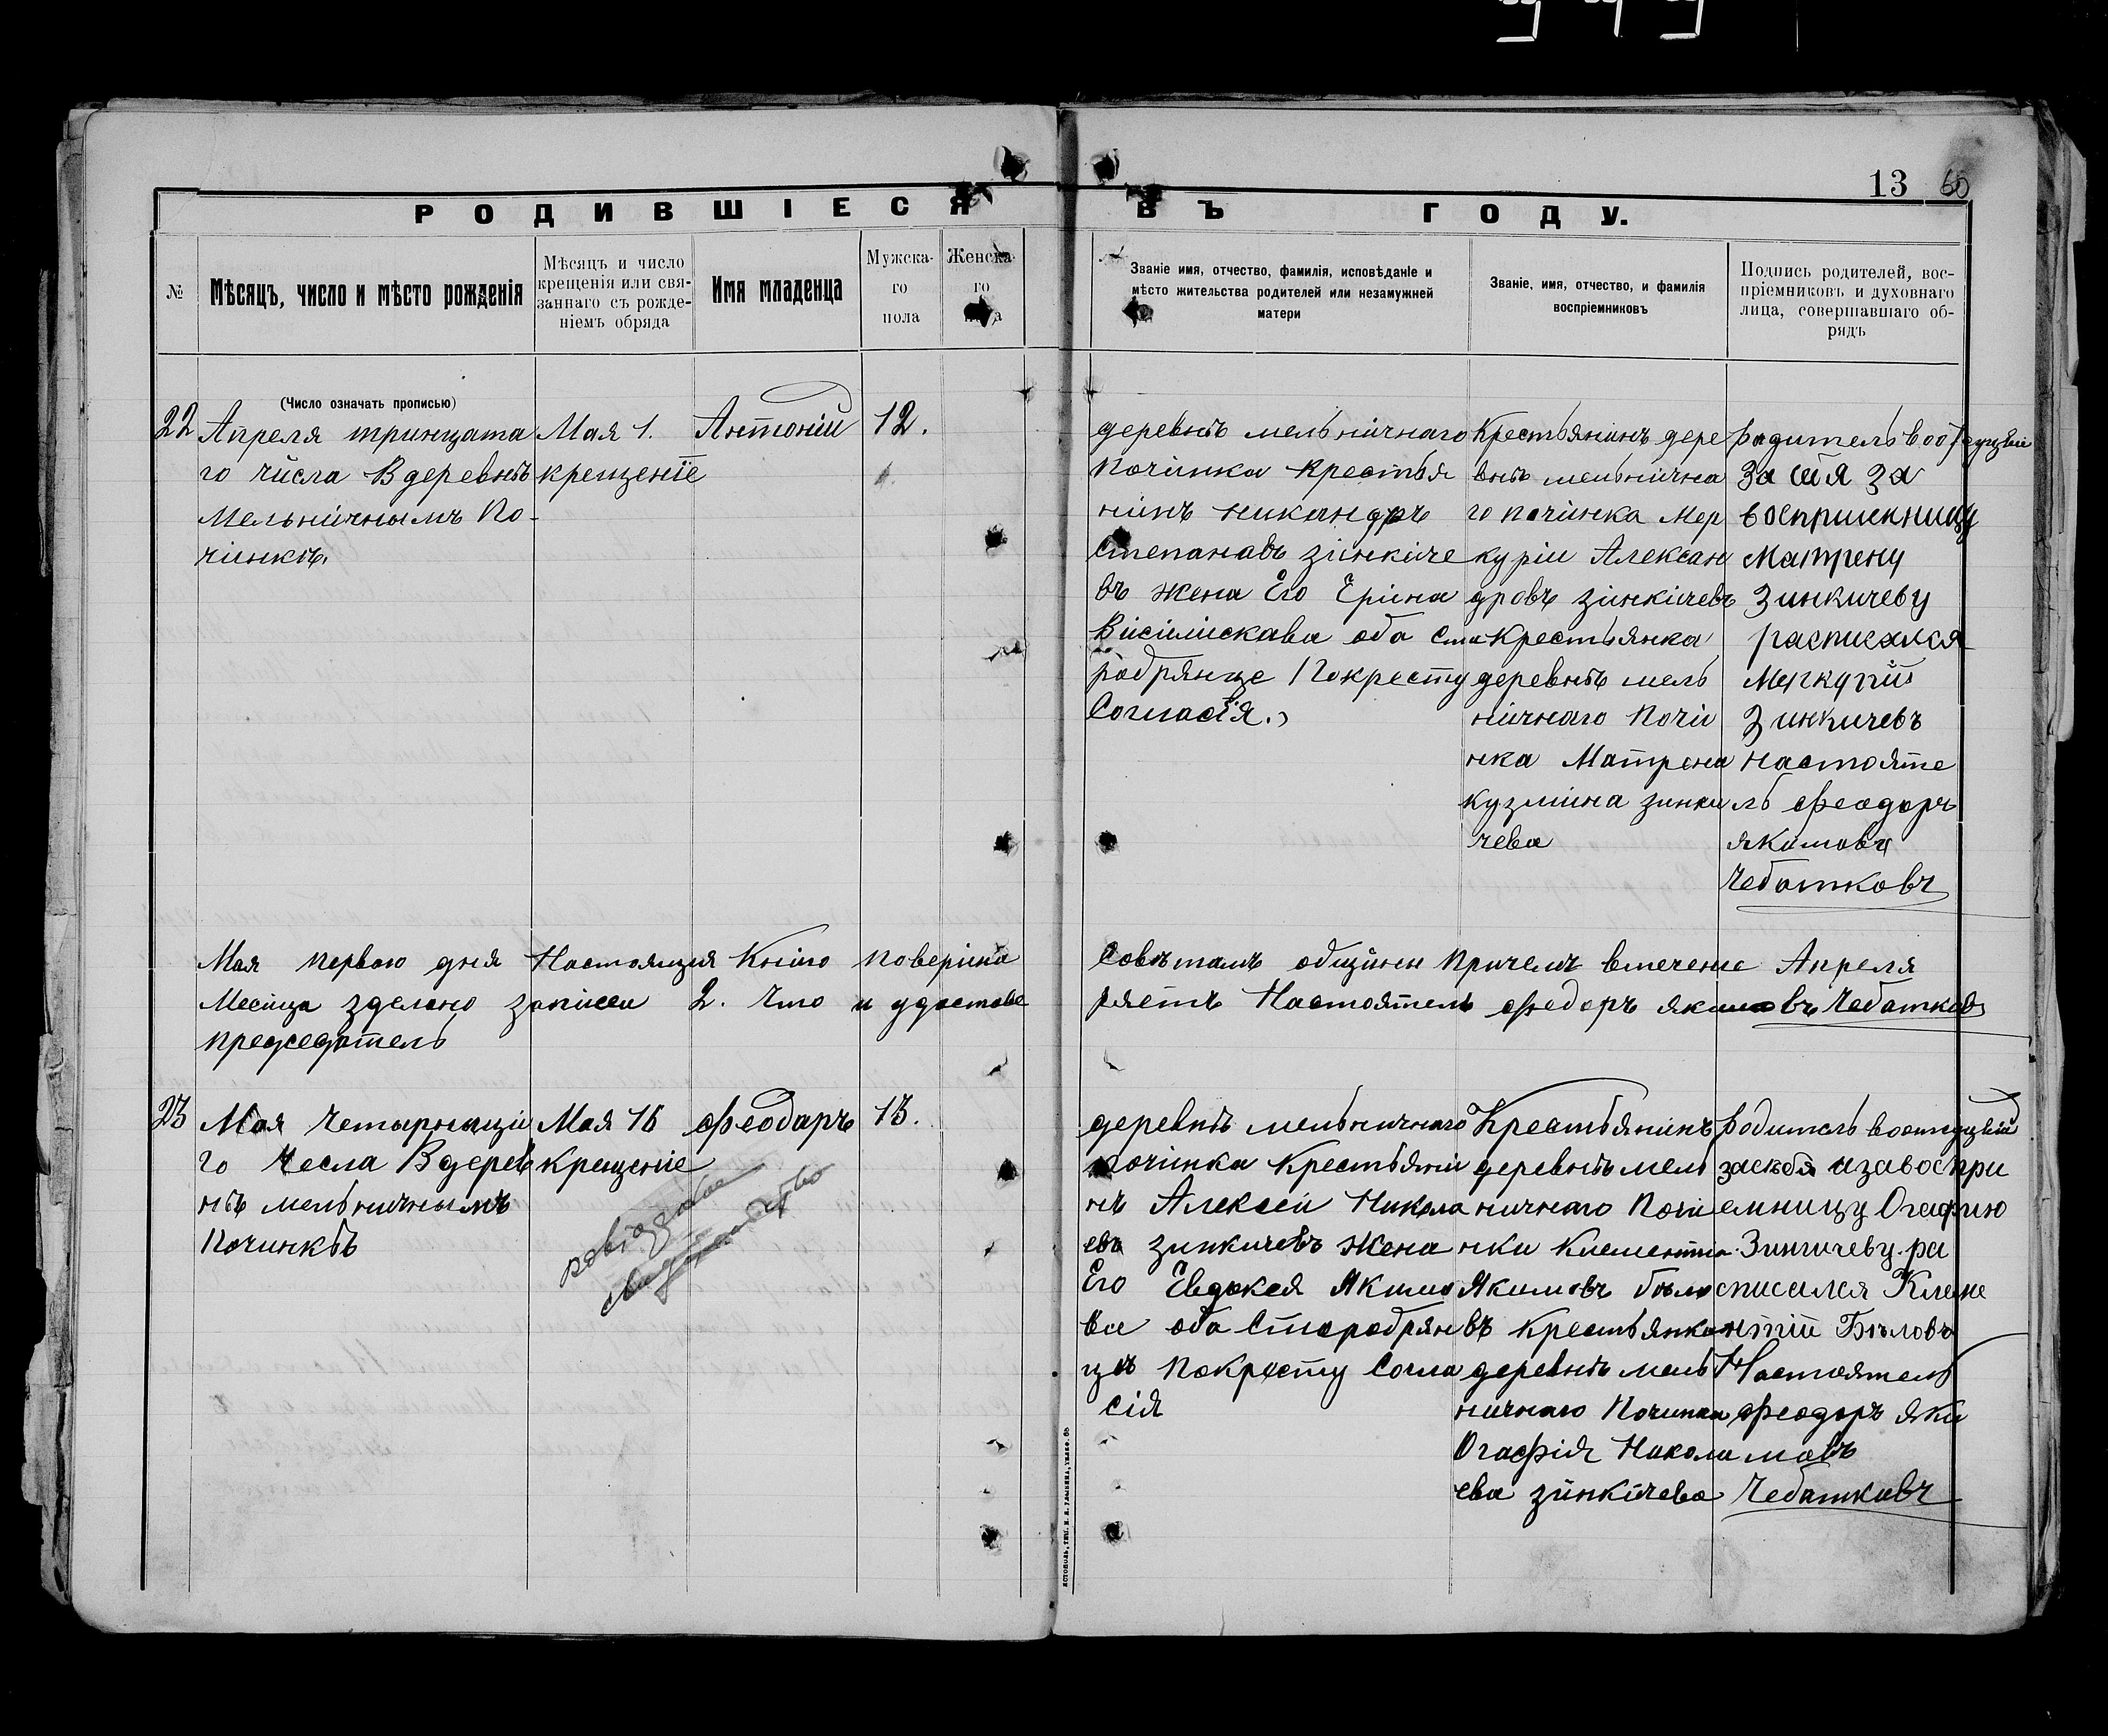 13 60
РОДИВШІЕСЯ ВЪ ГОДУ.
№
Мѣсяцъ, число и мѣсто рожденія
Мѣсяцъ и число
крещенія или свя-
заннаго съ рожде-
ніемъ обряда
Имя младенца
Мужска-
го
пола
Женска-
го
Званіе имя, отчество, фамилія, исповѣданіе и
мѣсто жительства родителей или незамужней
матери
Званіе, имя, отчество, и фамилія
воспріемниковъ
Подпись родителей, вос-
пріемниковъ и духовнаго
лица, совершавшаго об-
рядъ
(Число означать прописью)
22
Апреля тринцата
го числа В деревнѣ
Мельничнымъ По-
чинкѣ.
Мая 1.
крещеніе
Антоній
12.
деревнѣ мельничнаго
Починка Крестья
нинъ никандръ
Степанавъ зинкиче
въ жена Его Ерина
Висилискава оба ста
робрянце Покресту
Согласія.
Крестьянинъ дере
внѣ мельнична
го починка Мер
куріи Алексан
дровъ зинкичевъ
Крестьянка
деревнѣ мель
ничнаго Почи
нка Матрена
кузмина зинки
чева
Родитель
За за
восприемницу
Матрену
Зинкичеву
расписался
Меркурій
Зинкичевъ
настояте
ль Феодоръ
якимовъ
Чебатковъ
Мая первого дня Настоящия Книго поверина Советамъ общины Причемъ втечение Апреля
Месица зделано записеи 2. Что и удостове ряетъ Настоятель Федоръ якимовъ Чебатковъ
председатель
23
Мая Четырнаци
го Чесла В дерев
нѣ мельничнымъ
Починкѣ
Мая 15
крещеніе
Феодаръ
13.
деревнѣ мельничнаго
Починка Крестьяни
нъ Алексеи Никола
евъ зинкичевъ Жена
Его Евдокея Якимо
ва оба Старобрян
цѣ Покресту Согла
сія
Крестьянинъ
деревнѣ мель
ничнаго Почи
нки Клементіи
Якимовъ бѣло
въ Крестьянка
деревнѣ мель
ничнаго Починка
Огафія Никола
ева зинкичева
Родитель
засебя изавоспри
емницу Огафию
Зинкичеву. ра
списался Клеме
нтій Бѣловъ
Настоятель
Феодоръ яки
мовъ
Чебатковъ